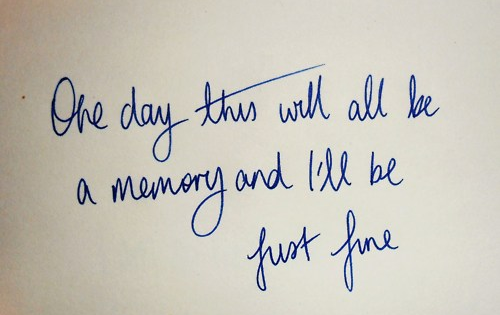 One day this will all be
a memory and I'll be
just fine